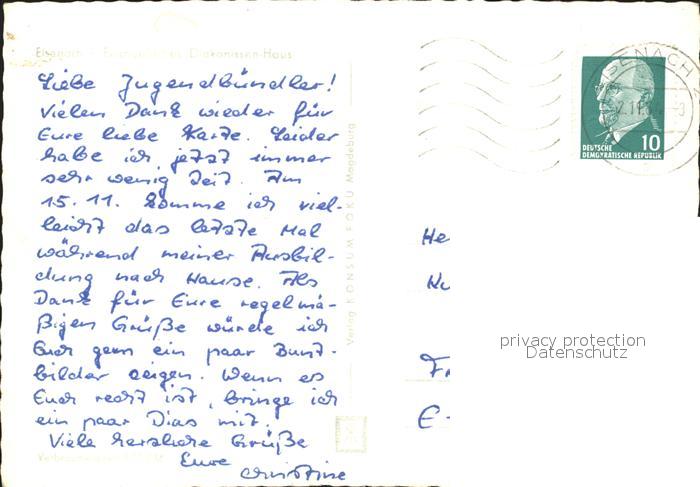 Eisenach - Evangelisches Diakonissen-Haus
Liebe Jugendbündler!
Vielen Dank wieder für
Eure liebe Karte. Leider
habe ich jetzt immer
sehr wenig Zeit. Am
15.11. komme ich viel-
leicht das letzte Mal
während meiner Ausbil-
dung nach Hause. Als
Dank für Eure regelmä-
ßigen Grüße würde ich
Euch gern ein paar Bunt-
bilder zeigen. Wenn es
Euch recht ist, bringe ich
ein paar Dias mit.
Viele herzliche Grüße
Eure
Christine
Verlag KONSUM FOKU Magdeburg
EISENACH
DEUTSCHE
DEMOKRATISCHE REPUBLIK
10
He
Fr
privacy protection
Datenschutz